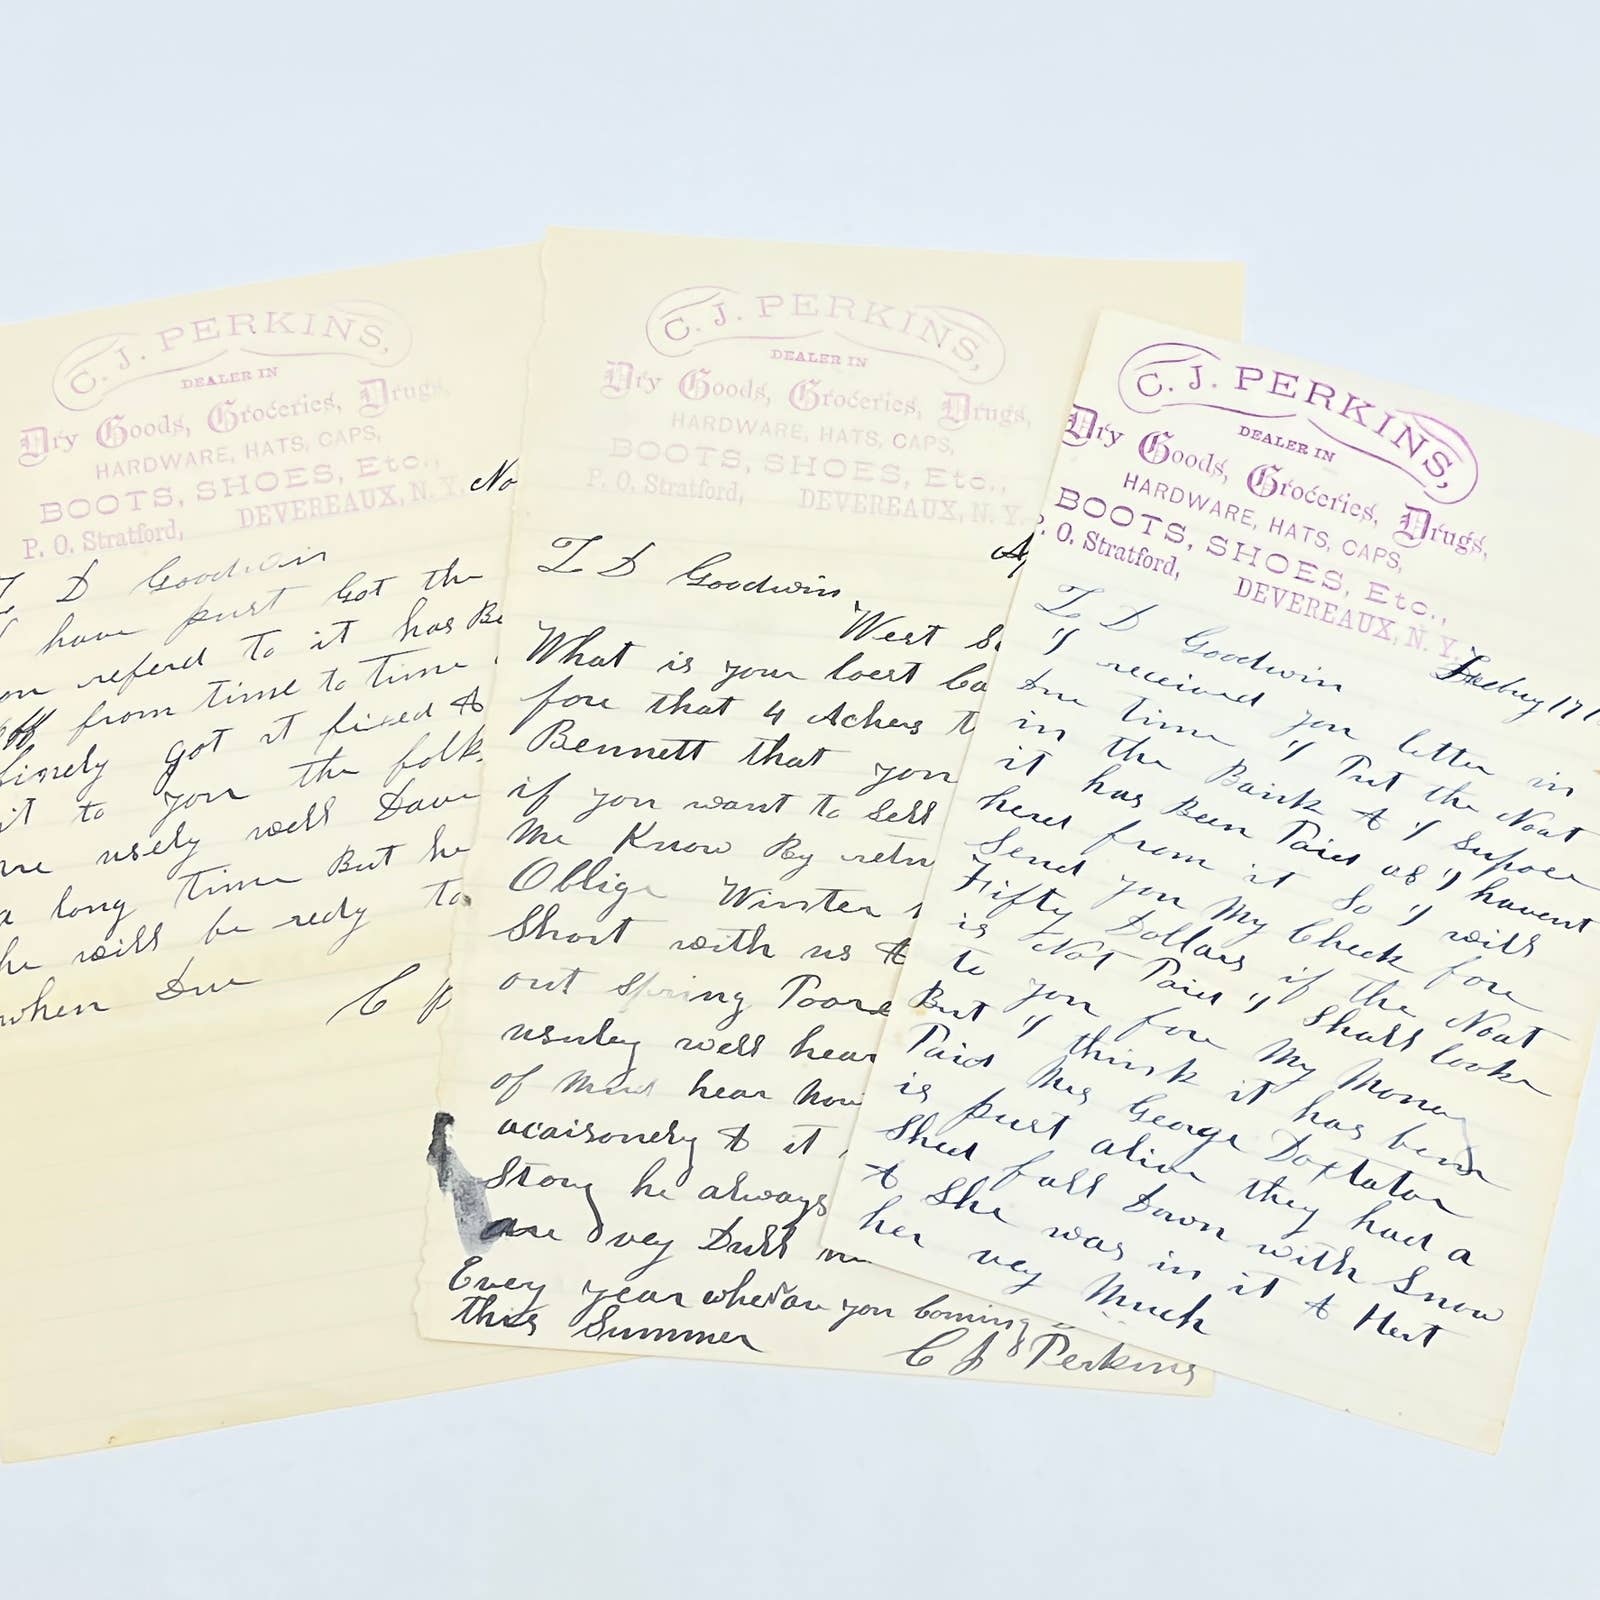 C. J. PERKINS,
DEALER IN
Dry Goods, Groceries, Drugs,
HARDWARE, HATS, CAPS,
BOOTS, SHOES, Etc.,
P. O. Stratford, DEVEREAUX, N. Y.
No
D Goodwin
have just got the
refered to it has Be
from time to time
finely got it fixed &
it to you the folk
usely well Dave
a long time But he
he will be redy to
when Due
C P
C. J. PERKINS,
DEALER IN
Dry Goods, Groceries, Drugs,
HARDWARE, HATS, CAPS,
BOOTS, SHOES, Etc.,
P. O. Stratford, DEVEREAUX, N. Y.
A
D Goodwin
West S
What is your loest Ca
fore that 4 Achers t
Bennett that you
if you want to Sell
Me Know By retu
Oblige Winter
Short with us &
out Spring Poore
usuley well hear
of hear
acaisonely & it
Stony he always
are vey Dull
Evey year when you Coming
this Summer
C J Perkins
C. J. PERKINS,
DEALER IN
Dry Goods, Groceries, Drugs,
HARDWARE, HATS, CAPS,
BOOTS, SHOES, Etc.,
P. O. Stratford, DEVEREAUX, N. Y.
17
D Goodwin
I received you letter in
Due time I Put the Noat
in the Bank & I Supose
it has Been Paid as I havent
herd from it So I will
Send you My Check fore
Fifty Dollars if the Noat
is Not Paid I Shall looke
to you for My Money
But I think it has been
Paid Mrs George Doxtator
is just alive they had a
Shed fall Down with Snow
& She was in it & Hert
her vey Much